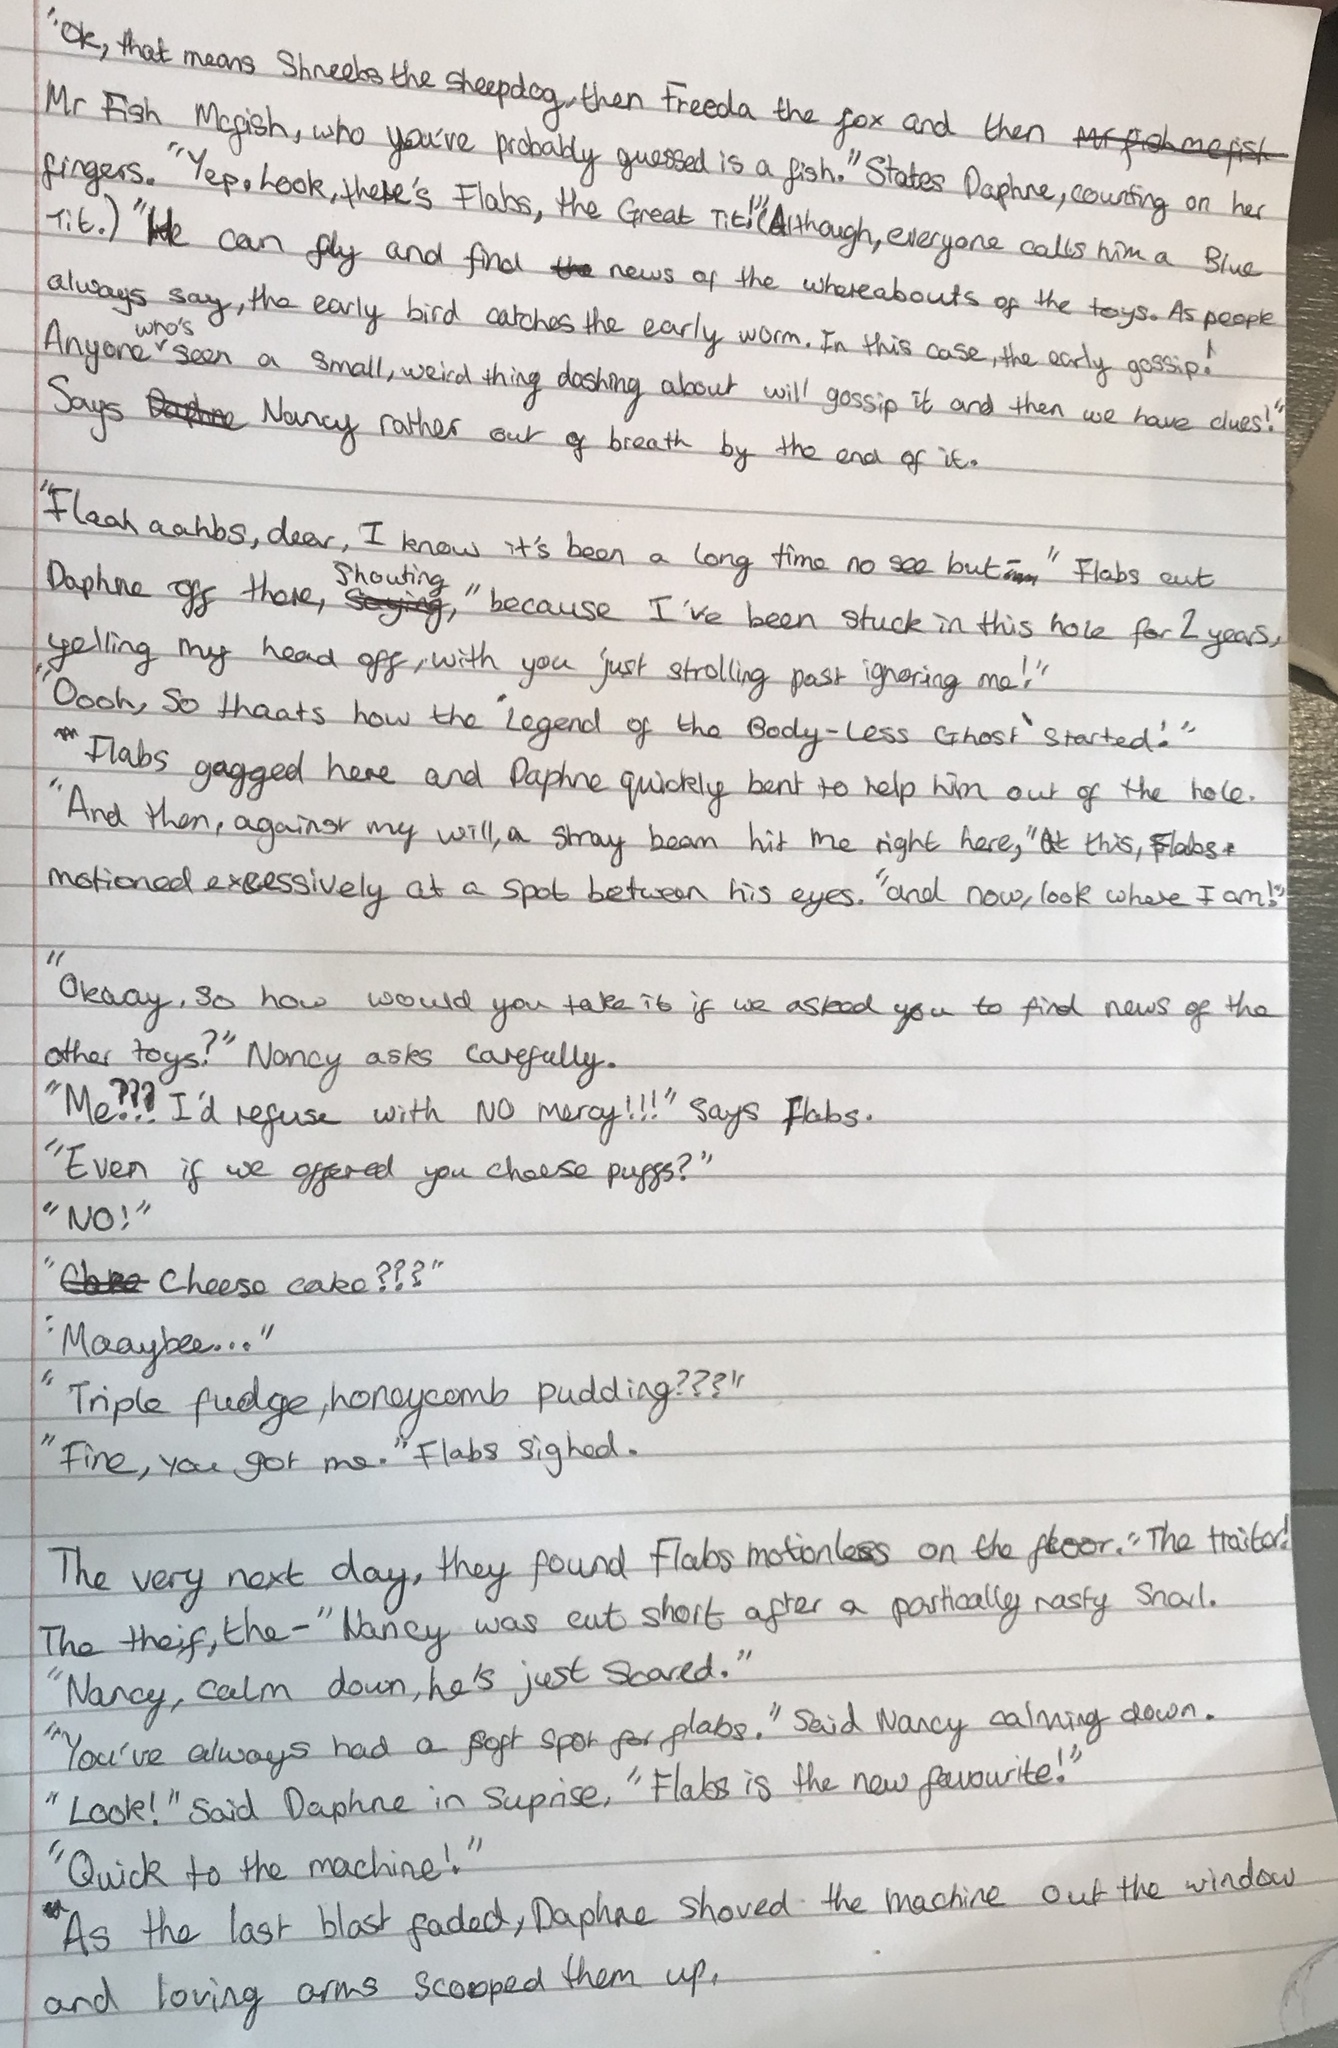 "Ok, that means Shreebs the sheepdog, then Freeda the fox and then Mr fish mcfish
Mr Fish Mcfish, who you've probably guessed is a fish." States Daphne, counting on her
fingers. "Yep. Look, there's Flabs, the Great Tit!" (Although, everyone calls him a Blue
Tit.) "He can fly and find the news of the whereabouts of the toys. As people
always say, the early bird catches the early worm. In this case, the early gossip!
Anyone who's seen a small, weird thing dashing about will gossip it and then we have clues!"
Says Daphne Nancy rather out of breath by the end of it.
"Flaah aahbs, dear, I know it's been a long time no see but-" Flabs cut
Daphne off there, saying, shouting "because I've been stuck in this hole for 2 years,
yelling my head off, with you just strolling past ignoring me!"
"Oooh, So thaats how the 'Legend of the Body-Less Ghost' started!"
Flabs gagged here and Daphne quickly bent to help him out of the hole.
"And then, against my will, a stray beam hit me right here," At this, Flabs
motioned excessively at a spot between his eyes. "and now, look where I am!"
"Okaay, so how would you take it if we asked you to find news of the
other toys?" Nancy asks carefully.
"Me??? I'd refuse with NO mercy!!!" Says Flabs.
"Even if we offered you cheese puffs?"
"NO!"
"Cheese cake???"
"Maaybee..."
"Triple fudge, honeycomb pudding???"
"Fine, you got me." Flabs sighed.
The very next day, they found Flabs motionless on the floor. "The traitor!
The theif, the-" Nancy was cut short after a partically nasty Snarl.
"Nancy, calm down, he's just Scared."
"You've always had a soft spot for flabs." Said Nancy calming down.
"Look!" Said Daphne in Suprise, "Flabs is the new favourite!"
"Quick to the machine!"
As the last blast faded, Daphne shoved the machine out the window
and loving arms scooped them up.